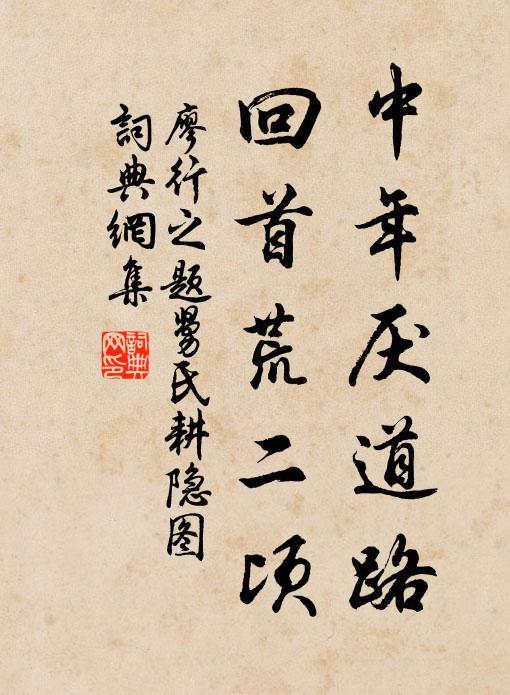 中年厌道路
回首荒二顷
廖行之题舅氏耕隐图
詞典網集
詞典网印